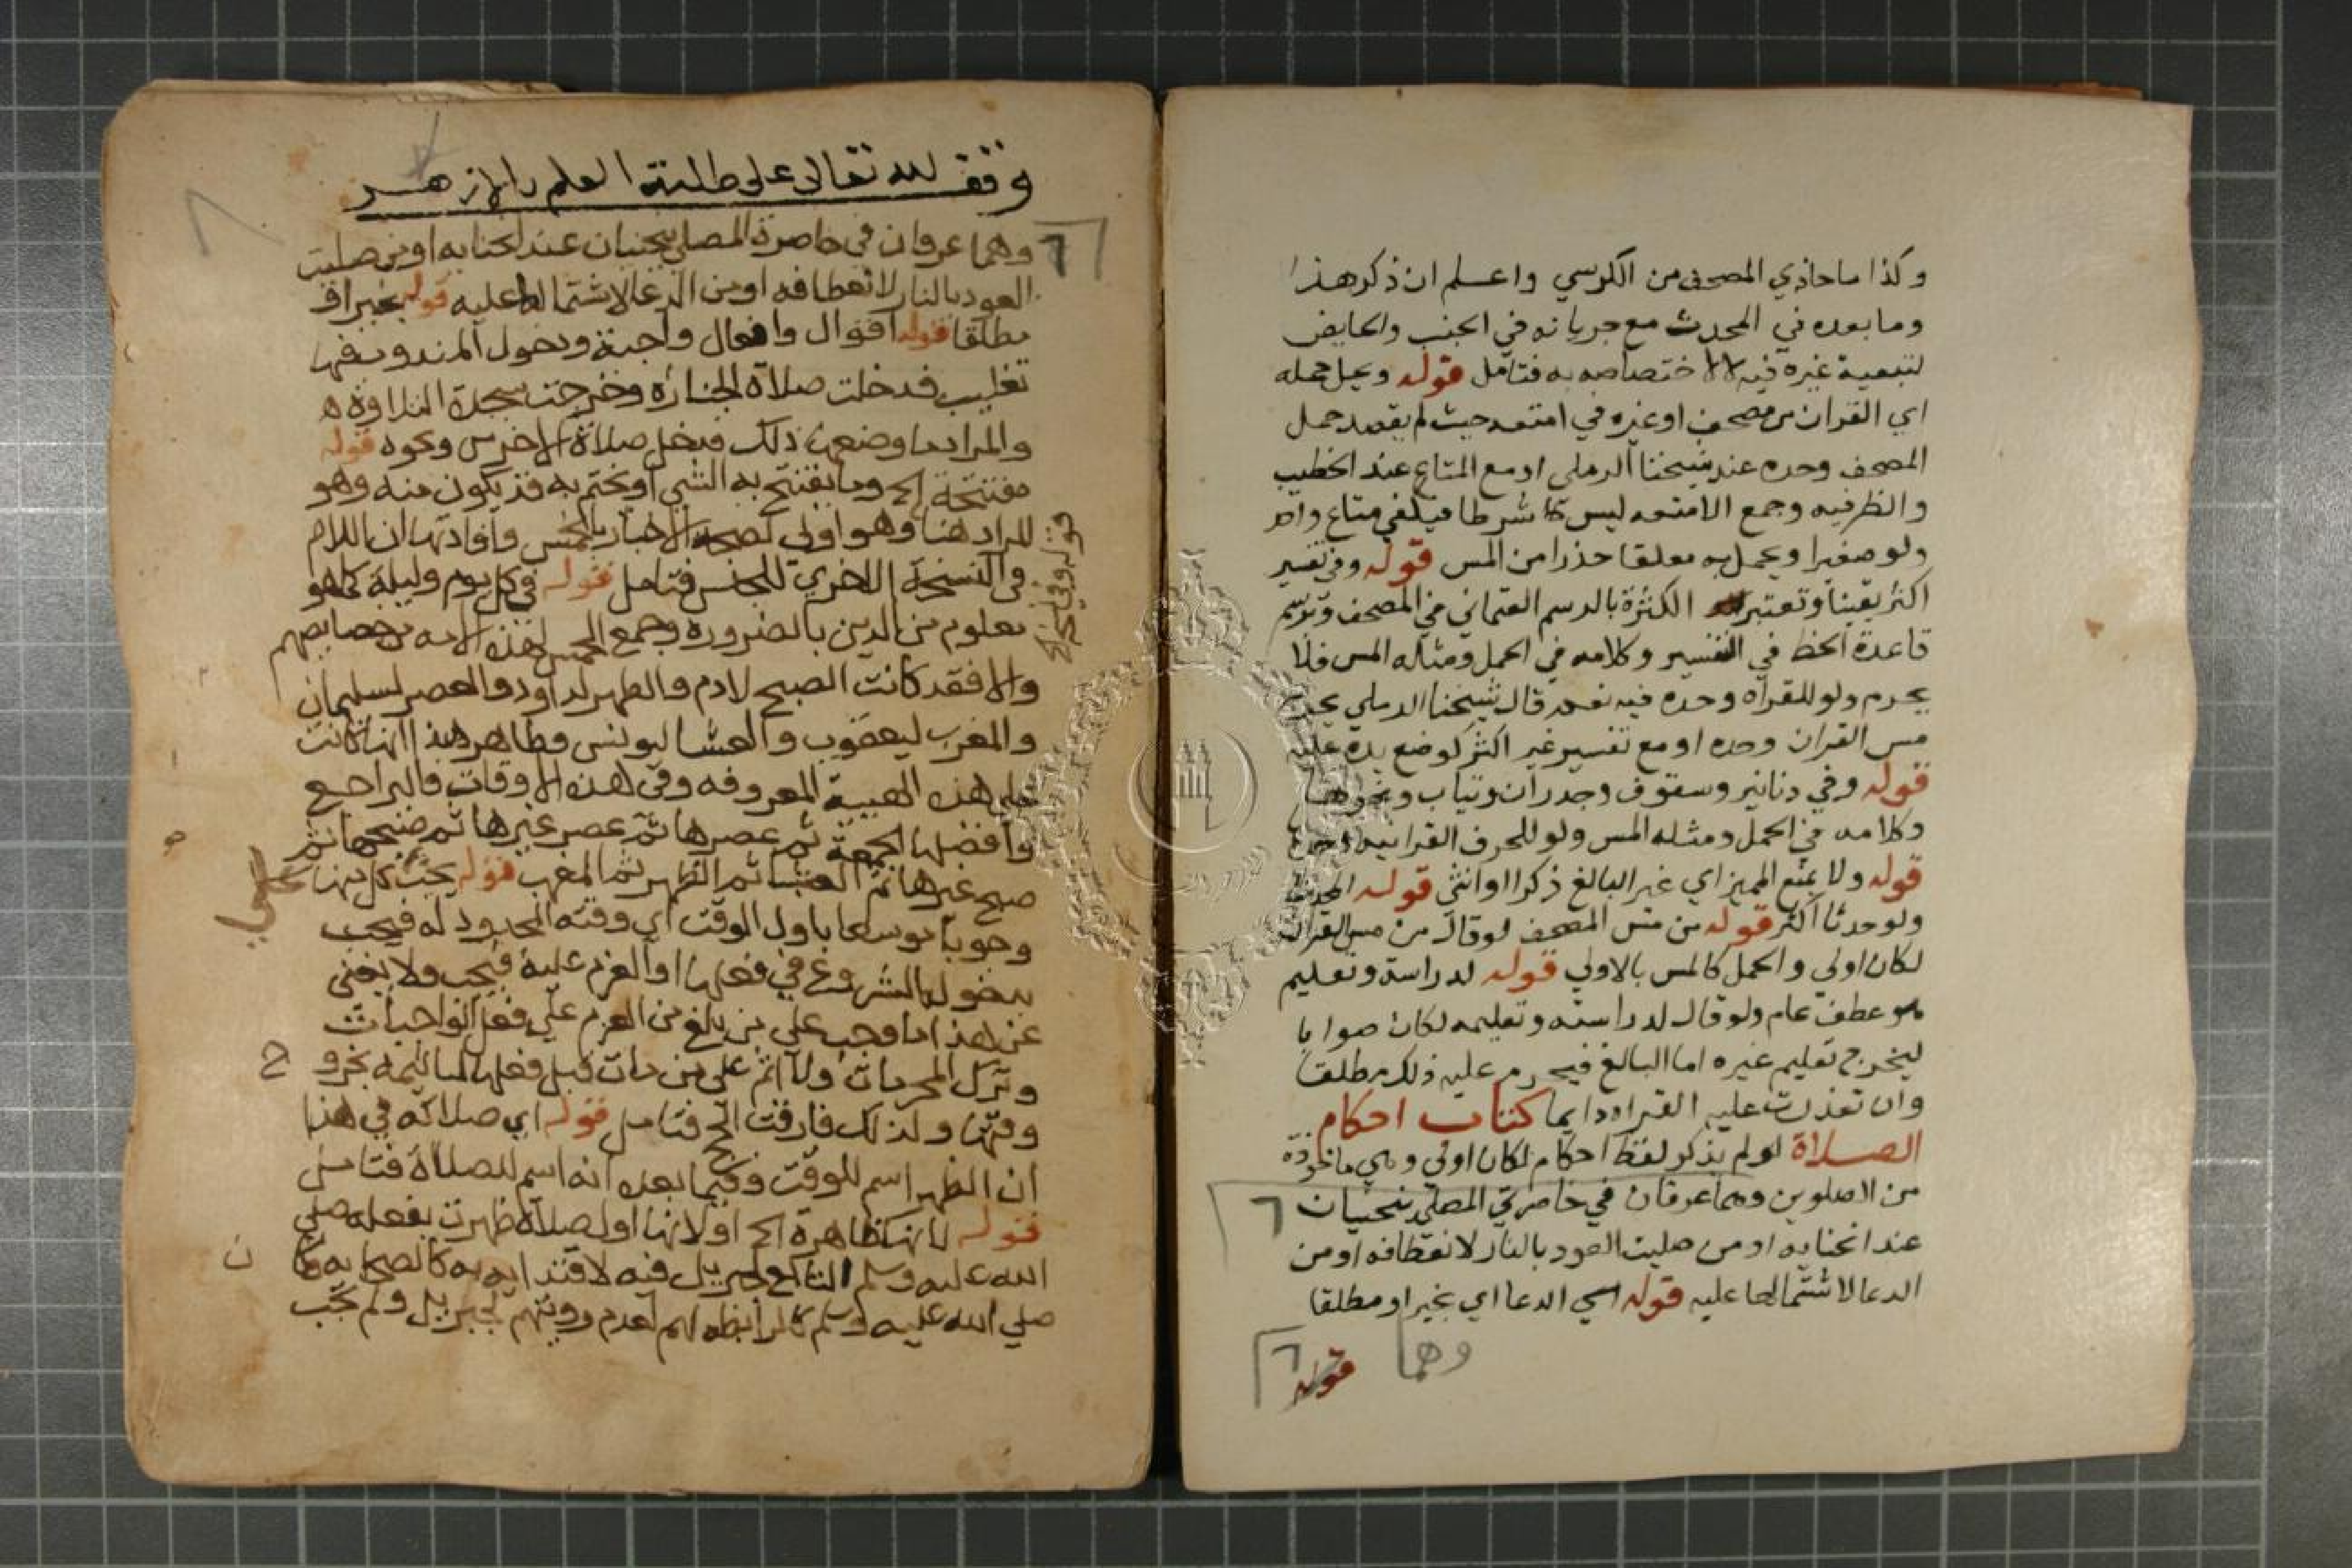 وكذا ما حاذي المصحف من الكرسي واعلم ان ذكر هذا
وما بعده في المحدث مع جريانه في الجنب والحايض
لتبعية غيره فيه لالاختصاصه به فتامل قوله ويحل حمله
اي القران من مصحف او غيره في امتعه حيث لم يقصد حمل
المصحف وحده عند شيخنا الرملي او مع المتاع عند الخطيب
والظرفيه وجمع الامتعه ليس شرطا فيكفي متاع واحد
ولو صغيرا ويحمل به معلقا حذرا من المس قوله وفي تفسير
اكثر يقينا وتعتبر الكثرة بالرسم العثماني في المصحف وترسم
قاعدة الخط في التفسير وكلامه في الحمل ومثله المس فلا
يحرم ولو للقراه وحده فيه نعم قال شيخنا الرملي يحرم
مس القران وحده او مع تفسير غير اكثر كوضع يده عليه
قوله وفي دنانير وسقوف وجدران وثياب ونحوها
وكلامه في الحمل ومثله المس ولو للحرف القرانيه
قوله ولا يمنع المميز اي غير البالغ ذكرا او انثى قوله المحدث
ولو حدثا اكثر قوله من مس المصحف لو قال من مس القران
لكان اولي والحمل كالمس بالاولي قوله لدراسة وتعليم
هو عطف عام ولو قال لدراسته وتعليمه لكان صوابا
ليخرج تعليم غيره اما البالغ فيحرم عليه ذلك مطلقا
وان تعذرت عليه القراه دايما كتاب احكام
الصلاة لو لم يذكر لفظ احكام لكان اولي وهي ماخوذة
من الاصلوين وهما عرقان في خاصرتي المصلي ينحنيان
عند انحنايه او من صليت العود بالنار لانعطافه او من
الدعا لاشتمالها عليه قوله اي الدعا اي بخير او مطلقا
قوله وهما
وقف لله تعالى على طلبة العلم بالازهر
وهما عرقان في خاصرة المصلي ينحنيان عند انحنايه او من صليت
العود بالنار لانعطافه او من الدعا لاشتمالها عليه قوله بخير او
مطلقا قوله اقوال وافعال واجبة ودخول المندوب فيها
تغليب فدخلت صلاة الجنازه وخرجت سجدة التلاوة
والمراد ما وضعها ذلك فدخل صلاة الاخرس ونحوه قوله
مفتتحة الخ وما يفتتح به الشي او يختم به قد يكون منه وهو
المراد هنا وهو اولي لصحة الاخبار بالخمس وافادتها ان اللام
في النسخة الاخري للجنس فتامل قوله في كل يوم وليلة كما هو
معلوم من الدين بالضرورة وجمع الخمس لهذه الامه من خصايصهم
والا فقد كانت الصبح لادم والظهر لداود والعصر لسليمان
والمغرب ليعقوب والعشا ليونس وظاهر هذا انها كانت
على هذه الهيية المعروفه وفي هذه الاوقات فاليراجع
وافضلها الجمعة ثم عصرها ثم عصر غيرها ثم صبحها ثم
صبح غيرها ثم العشا ثم الظهر ثم المغرب قوله يجب كل منها
وجوبا موسعا باول الوقت اي وقته المحدود له فيجب
بدخوله الشروع في فعلها او العزم عليه فيجب ولا يغني
عن هذا ما وجب على من بلغ من العزم على فعل الواجبات
وترك المحرمات ولا اثم على من مات قبل فعلها
وقتها ولذلك فارقت الحج فتامل قوله اي صلاته في هذا
ان الظهر اسم للوقت وفيما بعده انه اسم للصلاة فتامل
قوله لانها ظاهرة الخ او لانها اول صلاة ظهرت بفعله صلى
الله عليه وسلم التابع لجبريل فيه لاقتدايه به كالصحابه وكان
صلى الله عليه وسلم كالرابطه لهم لعدم رويتهم لجبريل ولم يجب